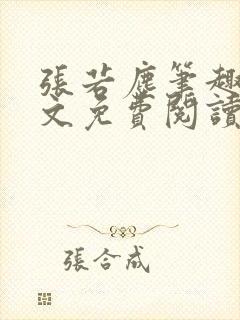 張若塵筆趣
文免費閱讀
張合成